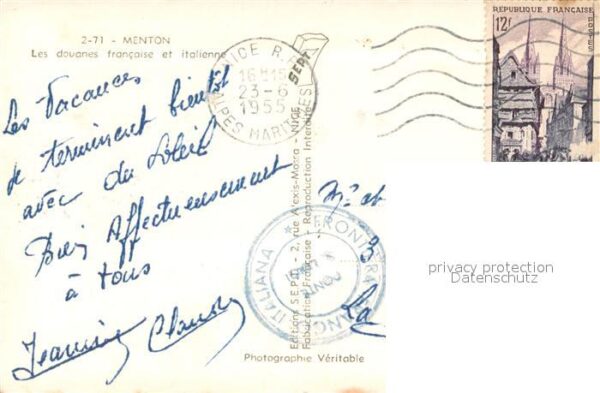 2-71 - MENTON
Les douanes française et italienne
NICE R.P.
16H15
23-6
1955
ALPES MARITIMES
RÉPUBLIQUE FRANÇAISE
12F
POSTES
Les Vacances
se terminent bientôt
avec du Soleil
Bien Affectueusement
à tous
Claude
Editions S.E.P.T. - 2, rue Alexis-Mossa - NICE
Fabrication Française - Reproduction Interdite
SEPT
ITALIANA
PONT
3
La
Photographie Véritable
privacy protection
Datenschutz